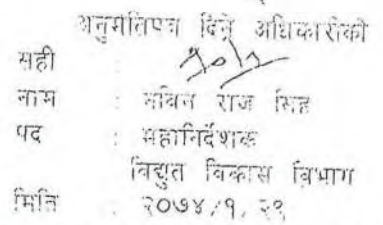 अनुमतिपत्र दिने अधिकारीको
सही
नाम : नविन राज सिंह
पद : महानिर्देशक
विद्युत विकास विभाग
मिति : २०७४/१/२९